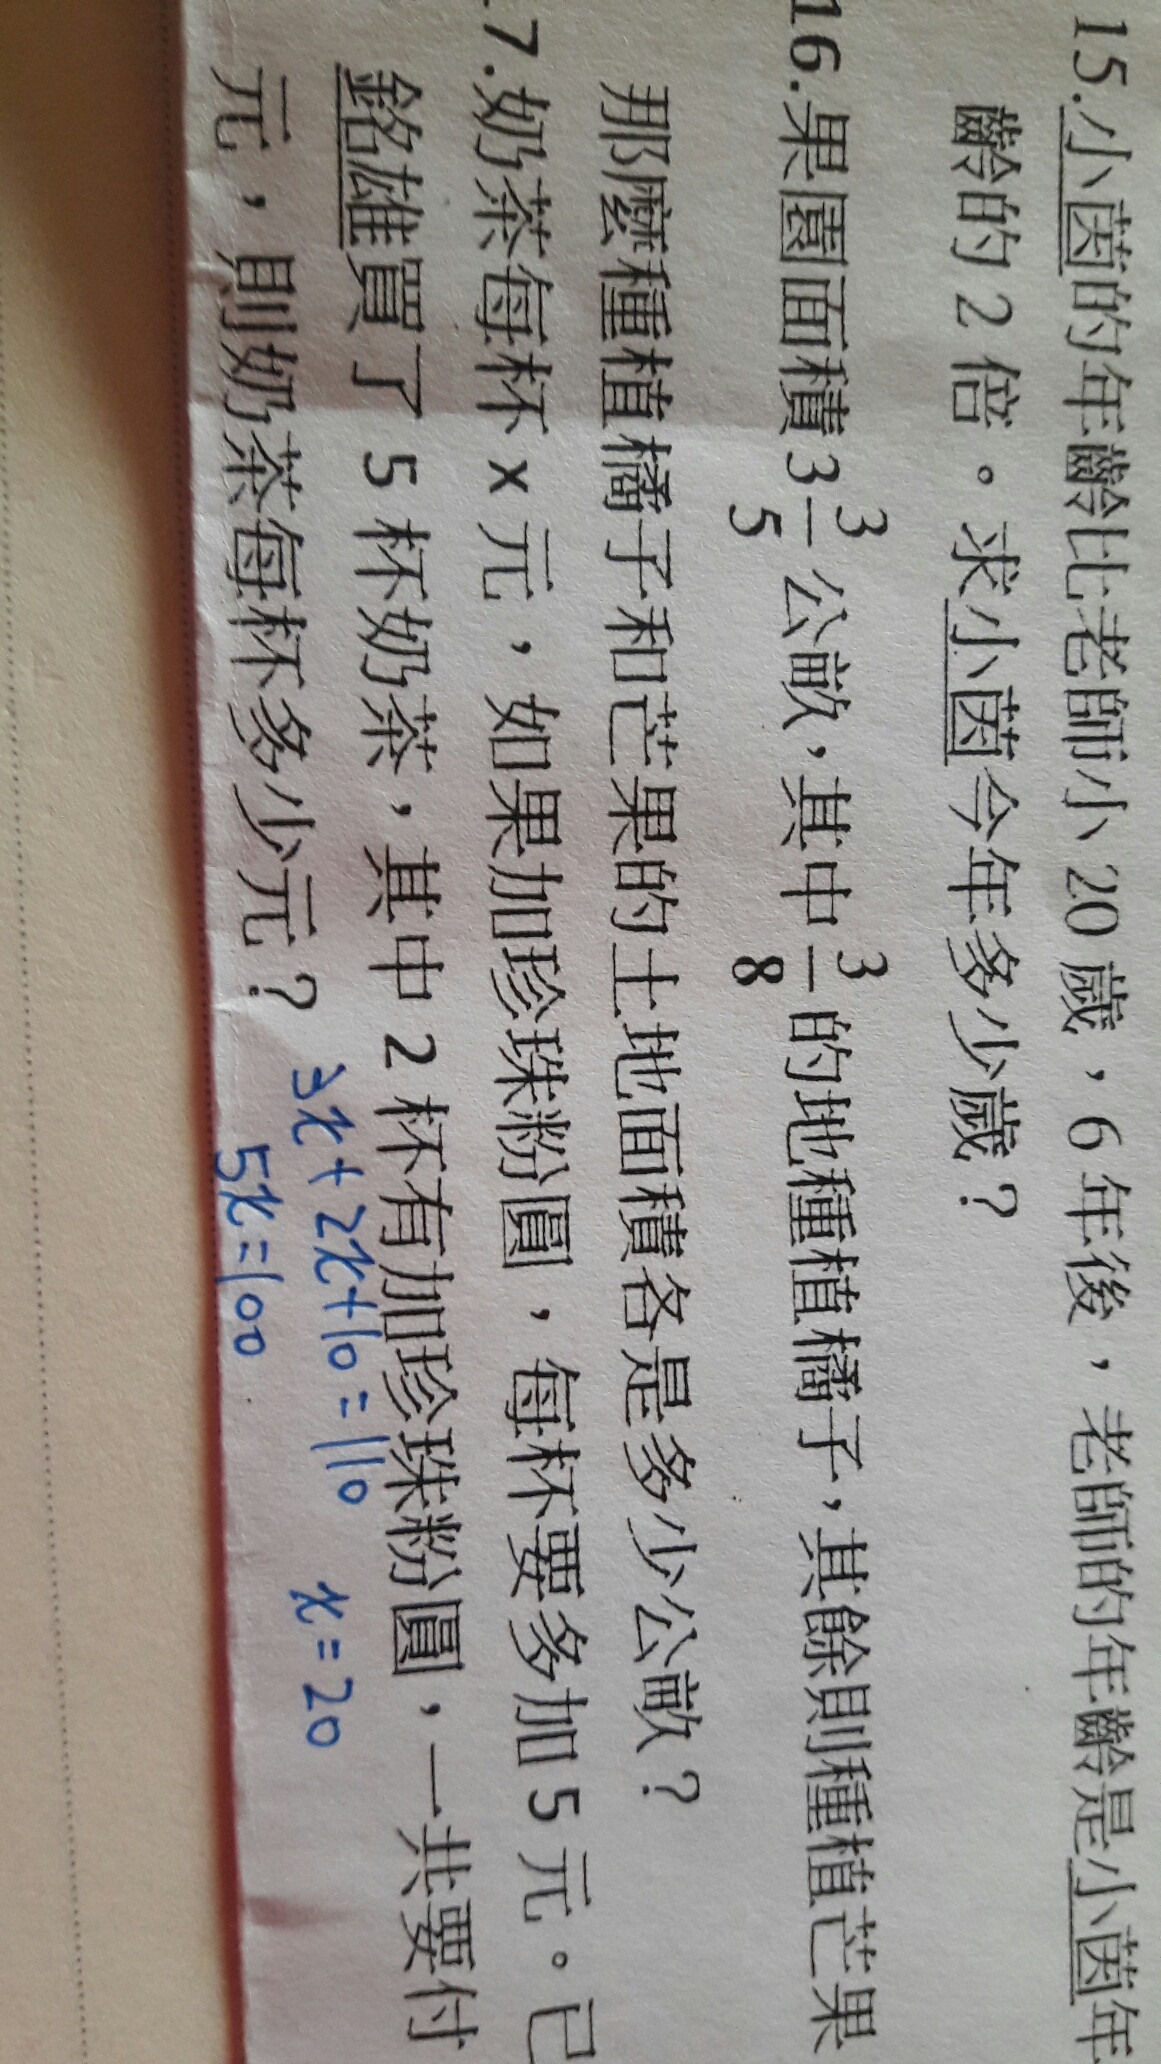 15.小茵的年齡比老師小 20 歲，6 年後，老師的年齡是小茵年
齡的 2 倍。求小茵今年多少歲？
16.果園面積3 3/5 公畝，其中 3/8 的地種植橘子，其餘則種植芒果
那麼種植橘子和芒果的土地面積各是多少公畝？
7.奶茶每杯 x 元，如果加珍珠粉圓，每杯要多加 5 元。已
銘雄買了 5 杯奶茶，其中 2 杯有加珍珠粉圓，一共要付
元，則奶茶每杯多少元？
3x+2x+10=110
5x=100
x=20